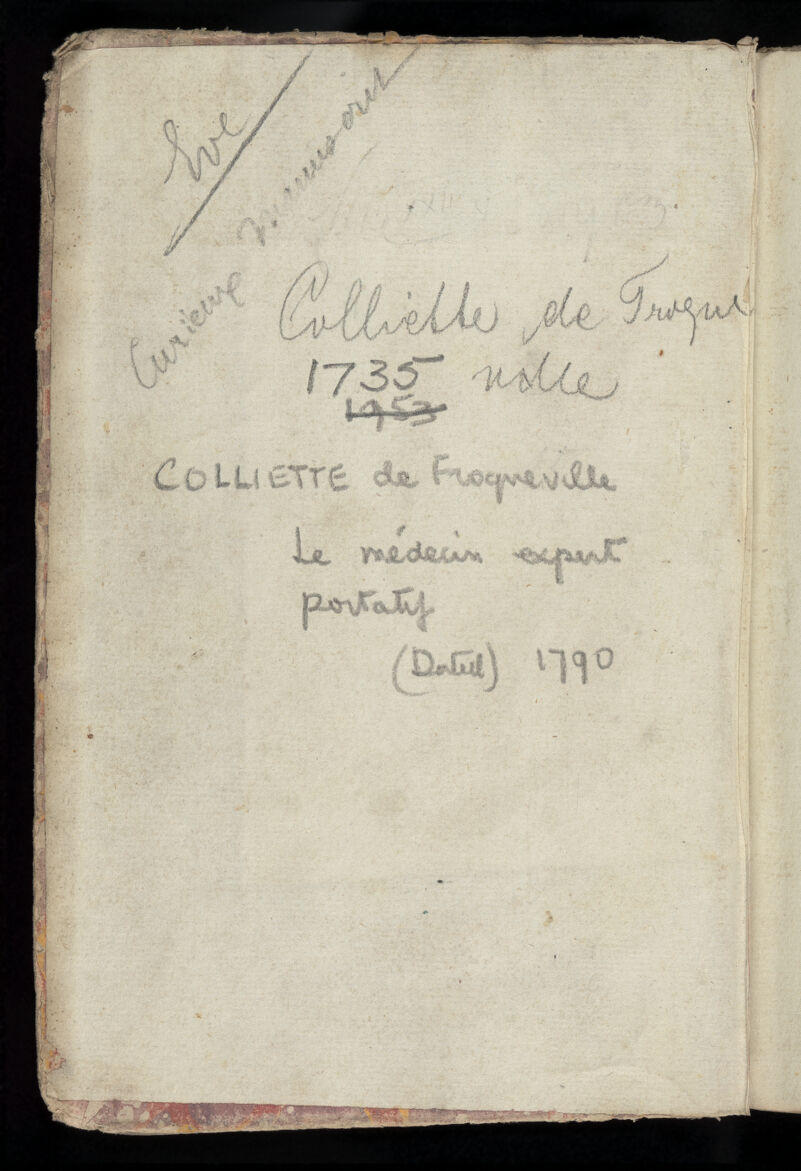 Eve
Curieux manuscrit
Colliette de Frogue
1735 ville
1953
COLLIETTE de Froqueville
Le médecin expert
portatif
(Dated) 1790